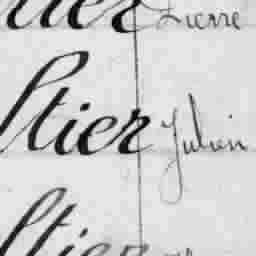 ltier Pierre
ltier Julien
ltier